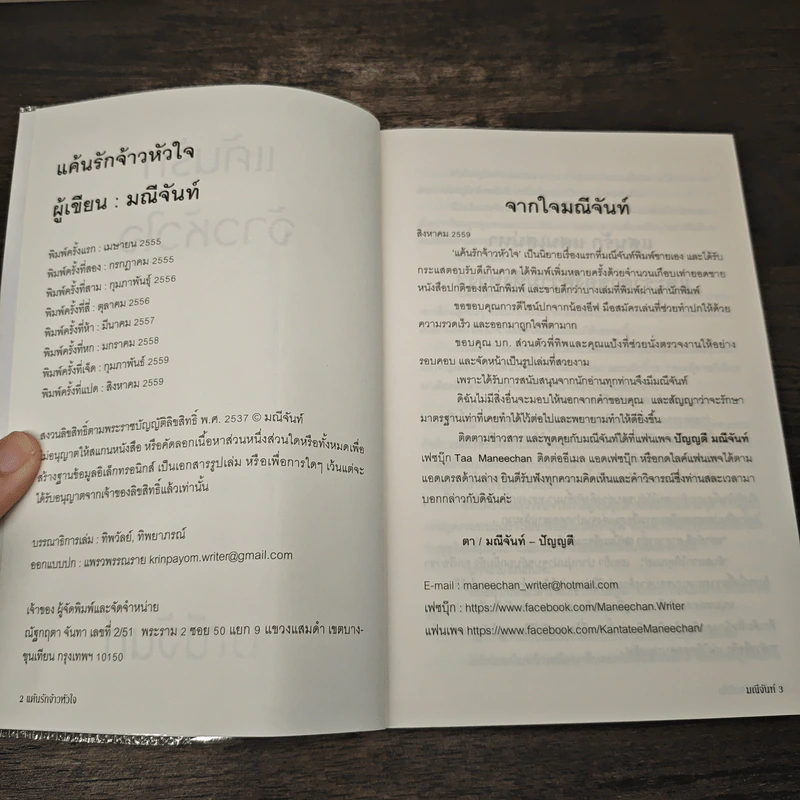 แค้นรักจ้าวหัวใจ
ผู้เขียน : มณีจันท์
พิมพ์ครั้งแรก : เมษายน 2555
พิมพ์ครั้งที่สอง : กรกฎาคม 2555
พิมพ์ครั้งที่สาม : กุมภาพันธุ์ 2556
พิมพ์ครั้งที่สี่ : ตุลาคม 2556
พิมพ์ครั้งที่ห้า : มีนาคม 2557
พิมพ์ครั้งที่หก : มกราคม 2558
พิมพ์ครั้งที่เจ็ด : กุมภาพันธ์ 2559
พิมพ์ครั้งที่แปด : สิงหาคม 2559
สงวนลิขสิทธิ์ตามพระราชบัญญัติลิขสิทธิ์ พ.ศ. 2537 © มณีจันท์
ไม่อนุญาตให้สแกนหนังสือ หรือคัดลอกเนื้อหาส่วนหนึ่งส่วนใดหรือทั้งหมดเพื่อ
สร้างฐานข้อมูลอิเล็กทรอนิกส์ เป็นเอกสารรูปเล่ม หรือเพื่อการใดๆ เว้นแต่จะ
ได้รับอนุญาตจากเจ้าของลิขสิทธิ์แล้วเท่านั้น
บรรณาธิการเล่ม : ทิพวัลย์, ทิพยาภรณ์
ออกแบบปก : แพรวพรรณราย krinpayom.writer@gmail.com
เจ้าของ ผู้จัดพิมพ์และจัดจำหน่าย
ณัฐกฤตา จันทา เลขที่ 2/51 พระราม 2 ซอย 50 แยก 9 แขวงแสมดำ เขตบาง-
ขุนเทียน กรุงเทพฯ 10150
2 แค้นรักจ้าวหัวใจ
จากใจมณีจันท์
สิงหาคม 2559
'แค้นรักจ้าวหัวใจ' เป็นนิยายเรื่องแรกที่มณีจันท์พิมพ์ขายเอง และได้รับ
กระแสตอบรับดีเกินคาด ได้พิมพ์เพิ่มหลายครั้งด้วยจำนวนเกือบเท่ายอดขาย
หนังสือปกติของสำนักพิมพ์ และขายดีกว่าบางเล่มที่พิมพ์ผ่านสำนักพิมพ์
ขอขอบคุณการดีไซน์ปกจากน้องอีฟ มือสมัครเล่นที่ช่วยทำปกให้ด้วย
ความรวดเร็ว และออกมาถูกใจพี่ตามาก
ขอบคุณ บก. ส่วนตัวพี่ทิพและคุณแป้งที่ช่วยนั่งตรวจงานให้อย่าง
รอบคอบ และจัดหน้าเป็นรูปเล่มที่สวยงาม
เพราะได้รับการสนับสนุนจากนักอ่านทุกท่านจึงมีมณีจันท์
ดิฉันไม่มีสิ่งอื่นจะมอบให้นอกจากคำขอบคุณ และสัญญาว่าจะรักษา
มาตรฐานเท่าที่เคยทำได้ไว้ต่อไปและพยายามทำให้ดียิ่งขึ้น
ติดตามข่าวสาร และพูดคุยกับมณีจันท์ได้ที่แฟนเพจ ปัญญตี มณีจันท์
เฟซบุ๊ก Taa Maneechan ติดต่ออีเมล แอดเฟซบุ๊ก หรือกดไลค์แฟนเพจได้ตาม
แอดเดรสด้านล่าง ยินดีรับฟังทุกความคิดเห็นและคำวิจารณ์ซึ่งท่านสละเวลามา
บอกกล่าวกับดิฉันค่ะ
ตา / มณีจันท์ – ปัญญตี
E-mail : maneechan_writer@hotmail.com
เฟซบุ๊ก : https://www.facebook.com/Maneechan.Writer
แฟนเพจ https://www.facebook.com/KantateeManeechan/
มณีจันท์ 3